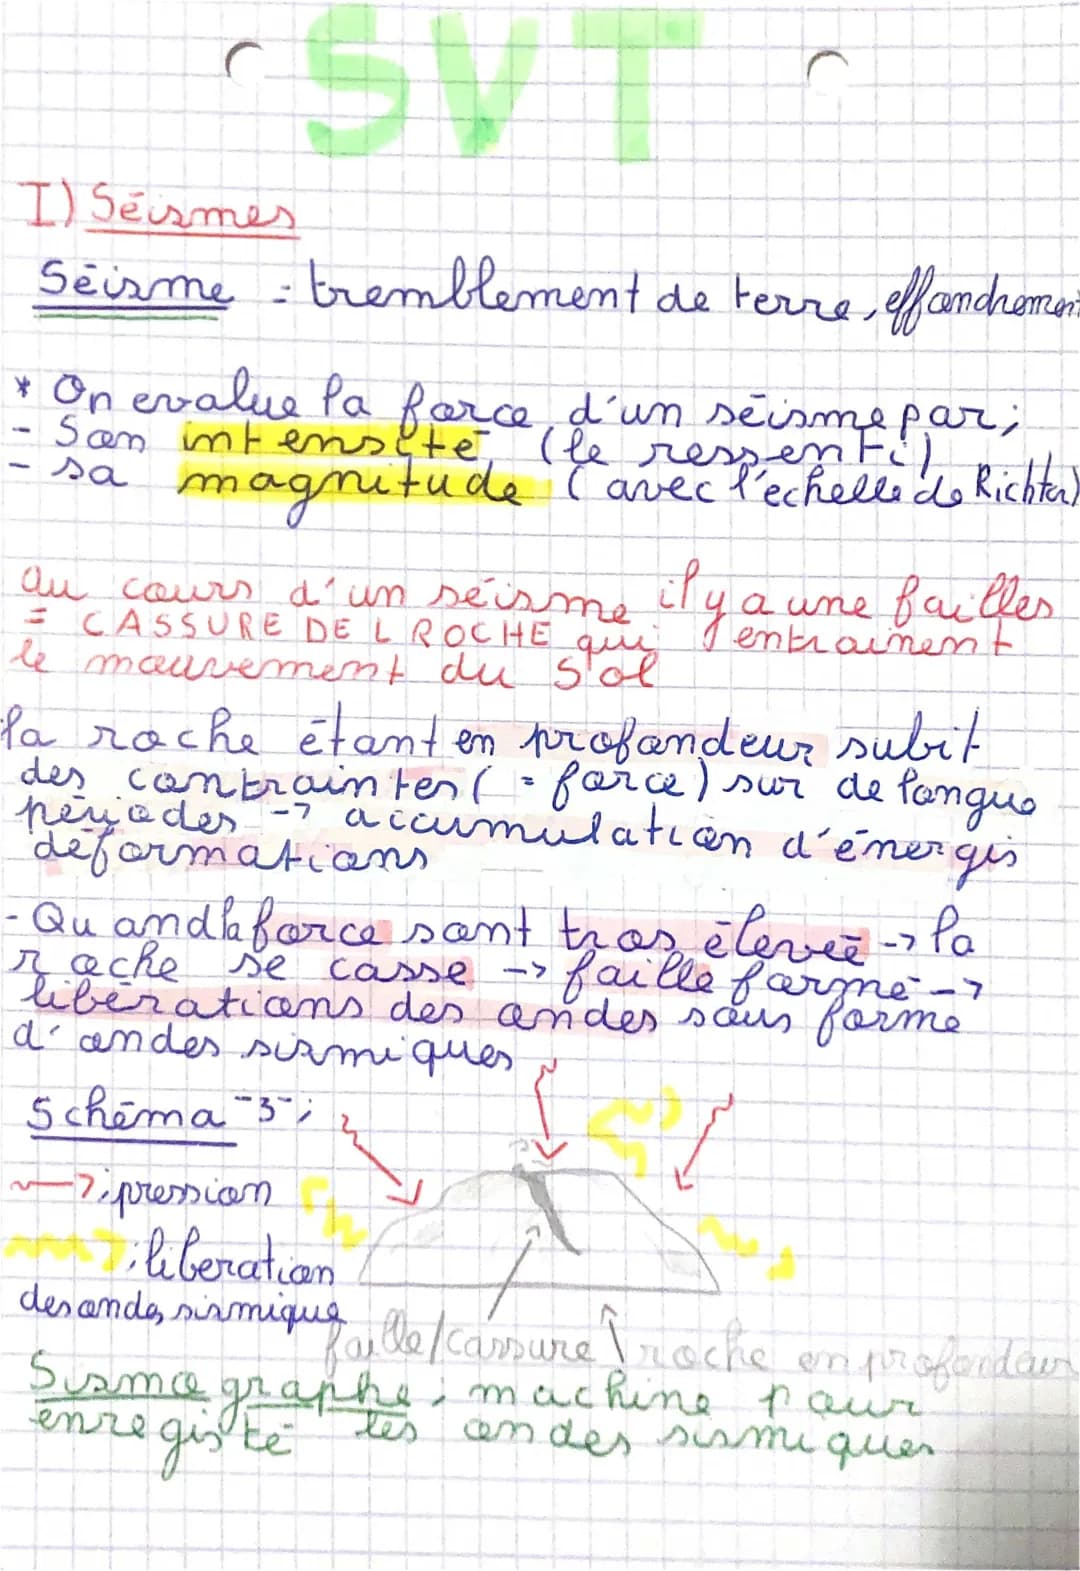 SVT
I) Séismes
Séisme = tremblement de terre, effondrement
* On evalue la force d'un séisme par ;
- Son intensité (le ressenti)
- sa magnitude (avec l'echelle de Richter)
au cours d'un séisme il y a une failles
= CASSURE DE L ROCHE qui entrainent
le mouvement du sol
la roche étant en profondeur subit
des contraintes (= force) sur de longue
périodes -> accumulation d'énergis
déformations
- Quand la force sont tros éleveé -> la
roche se casse -> faille formé ->
libérations des ondes sous forme
d'ondes sismiques
Schéma -3- ;
-> ; pression
-> ; liberation
des ondes sismique
faille/cassure roche en profondeur
Sismographe ; machine pour
enregisté les ondes sismiques